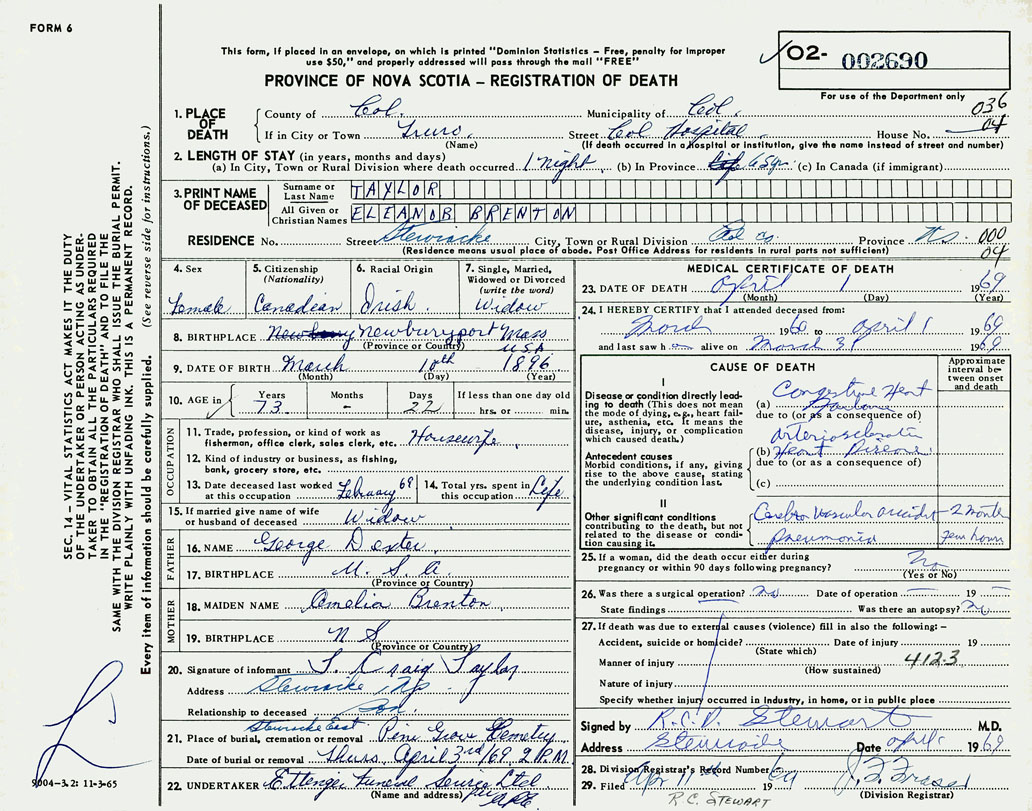 FORM 6
This form, if placed in an envelope, on which is printed "Dominion Statistics – Free, penalty for improper
use $50," and properly addressed will pass through the mail "FREE"
PROVINCE OF NOVA SCOTIA – REGISTRATION OF DEATH
02- 002690
For use of the Department only
036
04
1. PLACE OF DEATH
County of Col. Municipality of Col.
If in City or Town Truro. Street Col Hospital. House No.
(Name) (If death occurred in a hospital or institution, give the name instead of street and number)
2. LENGTH OF STAY (in years, months and days)
(a) In City, Town or Rural Division where death occurred 1 night (b) In Province Life 69yr. (c) In Canada (if immigrant)
3. PRINT NAME OF DECEASED
Surname or Last Name TAYLOR
All Given or Christian Names ELEANOB BRENTON
RESIDENCE No. Street Stewiacke City, Town or Rural Division Col co. Province N.S. 000
(Residence means usual place of abode. Post Office Address for residents in rural parts not sufficient) 04
4. Sex
Female
5. Citizenship
(Nationality)
Canadian
6. Racial Origin
Irish
7. Single, Married,
Widowed or Divorced
(write the word)
Widow
8. BIRTHPLACE Newburyport Mass
(Province or Country) U.S.A
9. DATE OF BIRTH March 10th 1896
(Month) (Day) (Year)
10. AGE in Years Months Days If less than one day old
73. - 22 hrs. or min.
OCCUPATION
11. Trade, profession, or kind of work as
fisherman, office clerk, sales clerk, etc. Housewife.
12. Kind of industry or business, as fishing,
bank, grocery store, etc.
13. Date deceased last worked
at this occupation February 69
14. Total yrs. spent in
this occupation Life
15. If married give name of wife
or husband of deceased Widow
FATHER
16. NAME George Dexter.
17. BIRTHPLACE U. S. A.
(Province or Country)
MOTHER
18. MAIDEN NAME Amelia Brenton
19. BIRTHPLACE N S
(Province or Country)
20. Signature of informant J. Craig Taylor
Address Stewiacke, NS
Relationship to deceased Son.
Stewiacke East
21. Place of burial, cremation or removal Pine Grove Cemetry
Date of burial or removal Thurs, April 3rd/69 2 P.M
22. UNDERTAKER Ettenger Funeral Service Ltd
(Name and address) per
MEDICAL CERTIFICATE OF DEATH
23. DATE OF DEATH April 1 1969
(Month) (Day) (Year)
24. I HEREBY CERTIFY that I attended deceased from:
March 1960 to April 1 1969
and last saw h alive on March 31 1969
CAUSE OF DEATH
Approximate
interval be-
tween onset
and death
I
Disease or condition directly lead-
ing to death (This does not mean
the mode of dying, e.g., heart fail-
ure, asthenia, etc. It means the
disease, injury, or complication
which caused death.)
(a) Congestive Heart Failure
due to (or as a consequence of)
Antecedent causes
Morbid conditions, if any, giving
rise to the above cause, stating
the underlying condition last.
(b) Arteriosclerotic Heart Disease
due to (or as a consequence of)
(c)
II
Other significant conditions
contributing to the death, but not
related to the disease or condi-
tion causing it.
Cerebro vascular accident 2 month
pneumonia few hours
25. If a woman, did the death occur either during
pregnancy or within 90 days following pregnancy? No
(Yes or No)
26. Was there a surgical operation? No Date of operation 19
State findings Was there an autopsy? No
27. If death was due to external causes (violence) fill in also the following: –
Accident, suicide or homicide? Date of injury 19
(State which)
Manner of injury 412.3
(How sustained)
Nature of injury
Specify whether injury occurred in industry, in home, or in public place
Signed by R.C.P. Stewart M.D.
Address Stewiacke Date April 1969
28. Division Registrar's Record Number
29. Filed Apr 19 69
(Division Registrar)
R C. STEWART
SEC. 14 – VITAL STATISTICS ACT MAKES IT THE DUTY
OF THE UNDERTAKER OR PERSON ACTING AS UNDER-
TAKER TO OBTAIN ALL THE PARTICULARS REQUIRED
IN THE "REGISTRATION OF DEATH" AND TO FILE THE
SAME WITH THE DIVISION REGISTRAR WHO SHALL ISSUE THE BURIAL PERMIT.
WRITE PLAINLY WITH UNFADING INK. THIS IS A PERMANENT RECORD.
Every item of information should be carefully supplied. (See reverse side for instructions.)
9004-3.2: 11-3-65